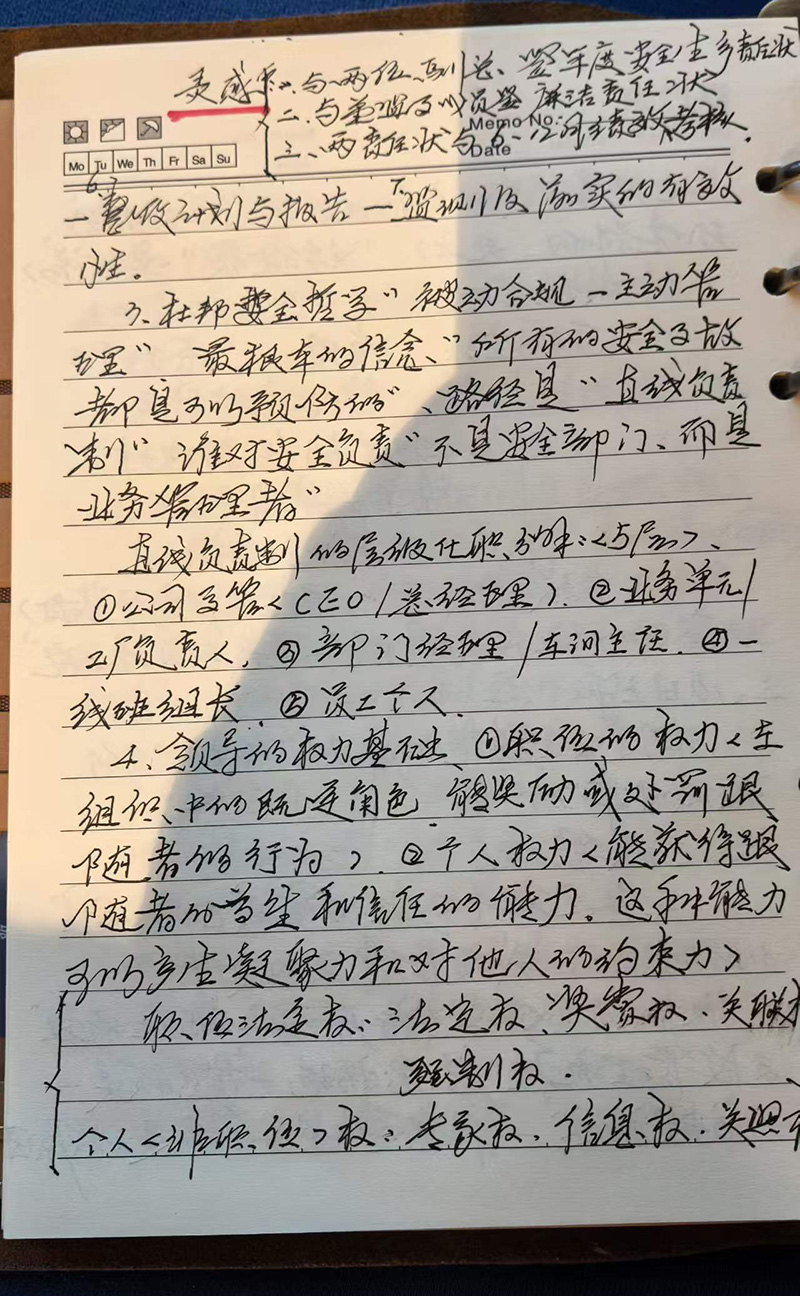 灵感 一、与两位副总、签年度安全生产责任状
二、与管理及以员签廉洁责任状
三、两责任状与6-12月绩效考核。
Memo No:
Date
Mo Tu We Th Fr Sa Su
6.3
一整改计划与报告一下
级别及落实的有效
性。
3、杜邦安全哲学"被动合规-主动管
理" 最根本的信念、"所有的安全事故
都是可以预防的"、路径是"直线负责
制" 谁对安全负责"不是安全部门、而是
业务管理者"
直线负责制的层级任职 <5层>、
①公司主管<CEO/总经理>. ②业务单元/
工厂负责人. ③部门经理/车间主任. ④一
线班组长. ⑤员工个人.
4、领导的权力基础、①职位的权力<在
组织中的既定角色.能奖励或处罚跟
随者的行为>. ②个人权力<能获得跟
随者的尊重和信任的能力。这种能力
可以产生凝聚力和对他人的约束力>
职位法定权:法定权、奖赏权.关联权
强制权.
个人<非职位>权:专家权、信息权.关照